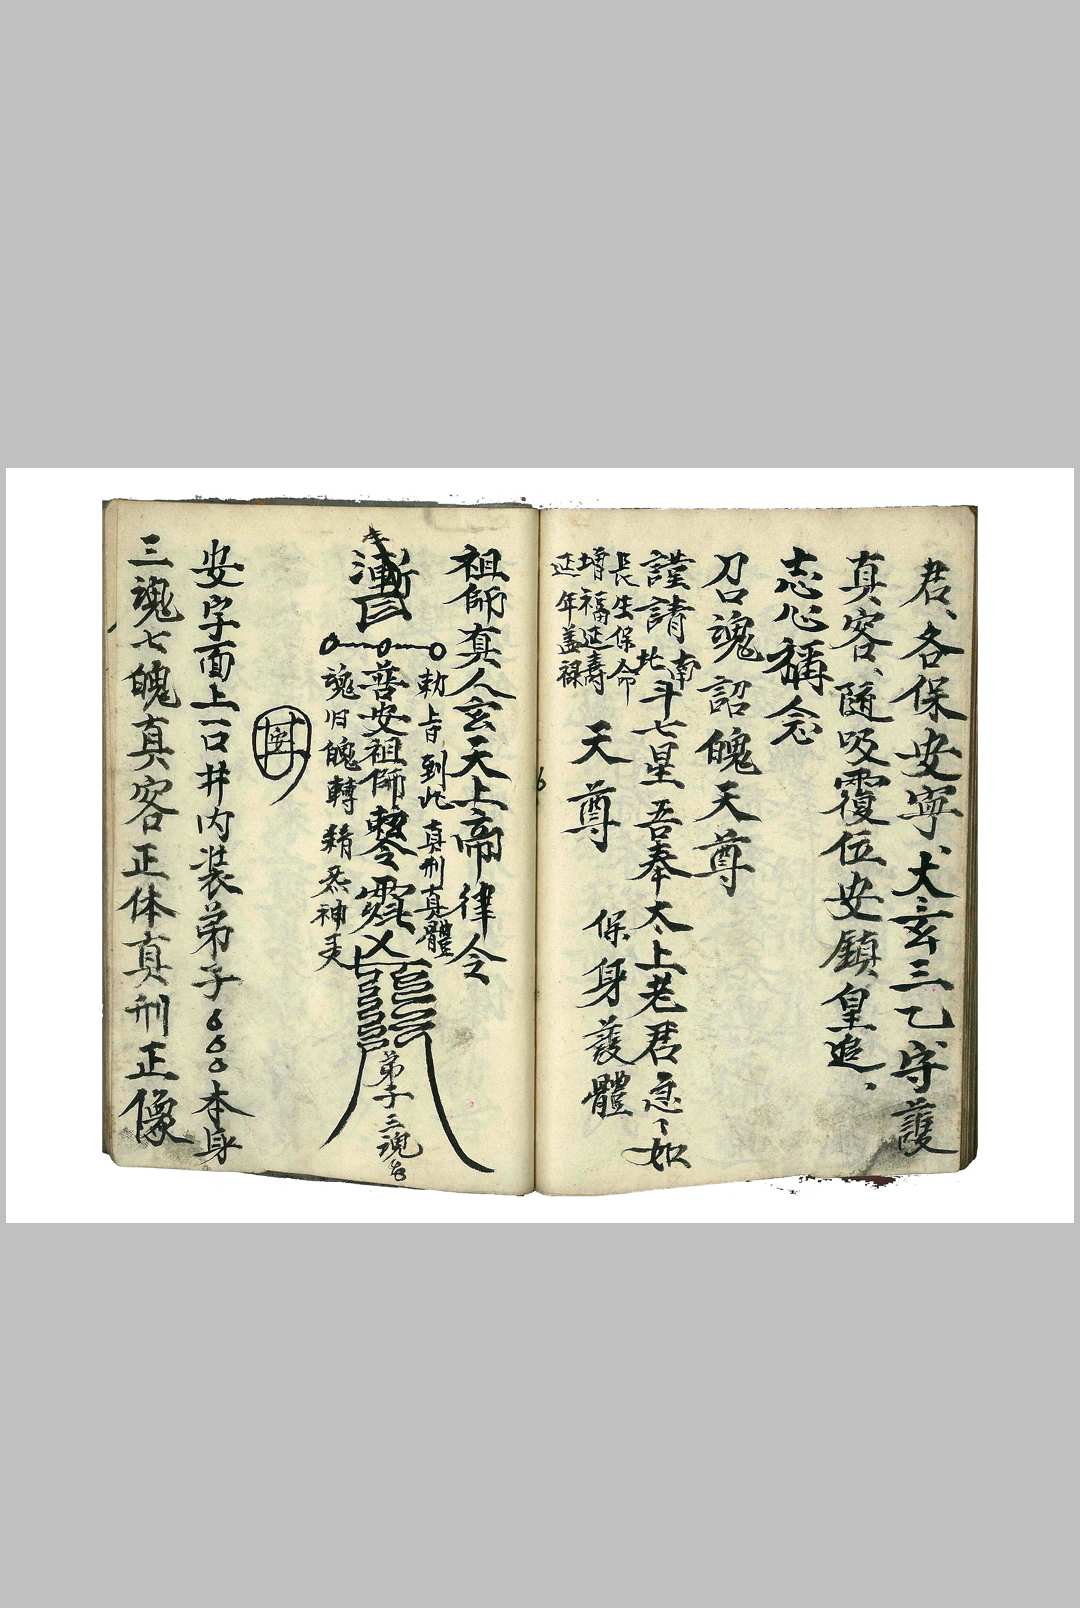 君、各保安寧、太玄三乙、守護
真容、隨吸覆位安鎮皇
志心稱念
刀口魂詔魄天尊
謹請南北斗七星吾奉太上老君急、如
長生保命
增福延壽
延年盖禄
天尊
保身護體
祖師真人玄天上帝律令
勅上旨到此真刑真體
普安祖師
弟子三魂
魂旧魄轉精炁神
安
安字面上一口井内装弟子本身
三魂七魄真容正体真刑正像